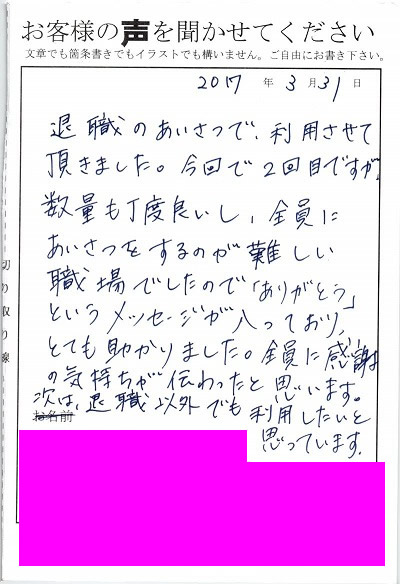 お客様の声を聞かせてください
文章でも箇条書きでもイラストでも構いません。ご自由にお書き下さい。
2017 年 3 月 31 日
退職のあいさつで、利用させて
頂きました。今回で2回目ですが、
数量も丁度良いし、全員に
あいさつをするのが難しい
職場でしたので「ありがとう」
というメッセージが入っており、
とても助かりました。全員に感謝
の気持ちが伝わったと思います。
次は、退職以外でも利用したいと
思っています。
お名前
切り取り線